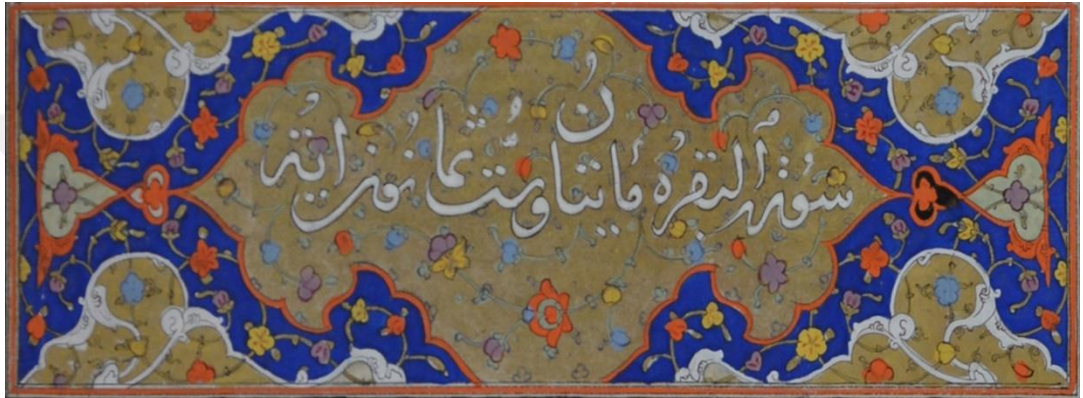 سورة البقرة مايتان وست و ثمانون اية